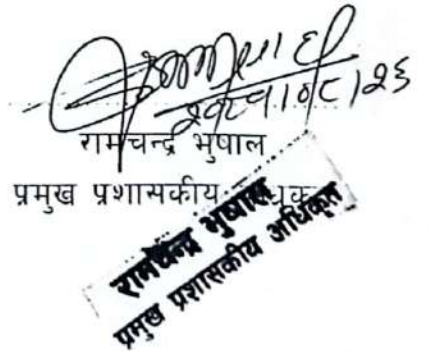 २०८१।०८।२६
रामचन्द्र भुषाल
प्रमुख प्रशासकीय अधिकृत
रामचन्द्र भुषाल
प्रमुख प्रशासकीय अधिकृत